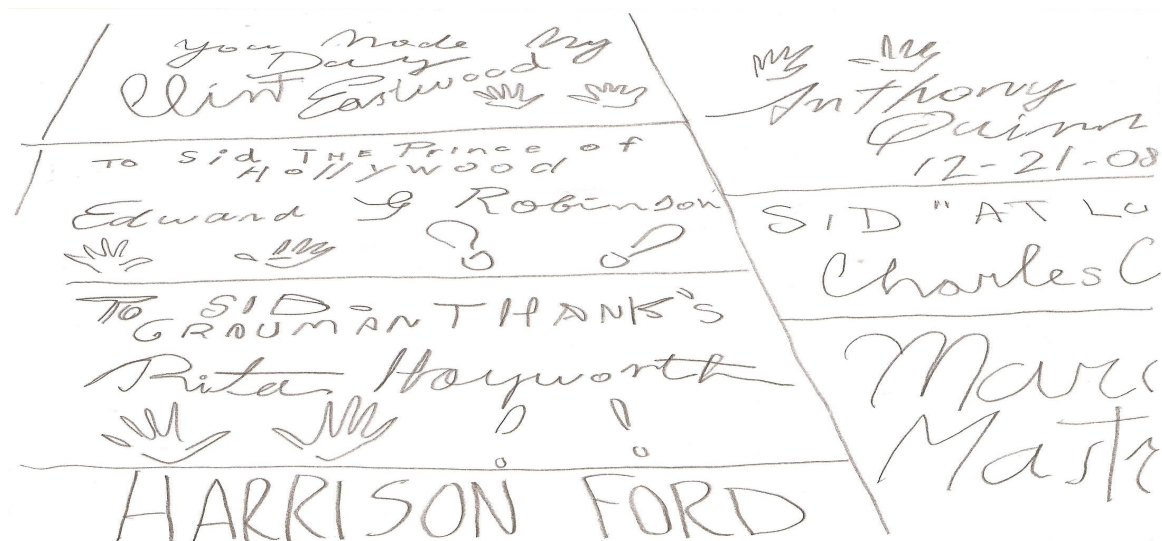 you made my
Day
Clint Eastwood
To Sid THE Prince of
Hollywood
Edward G Robinson
To SID
GRAUMAN THANK'S
Rita Hayworth
HARRISON FORD
Anthony
Quinn
12-21-08
SID "AT LU
Charles C
Marc
Mastr